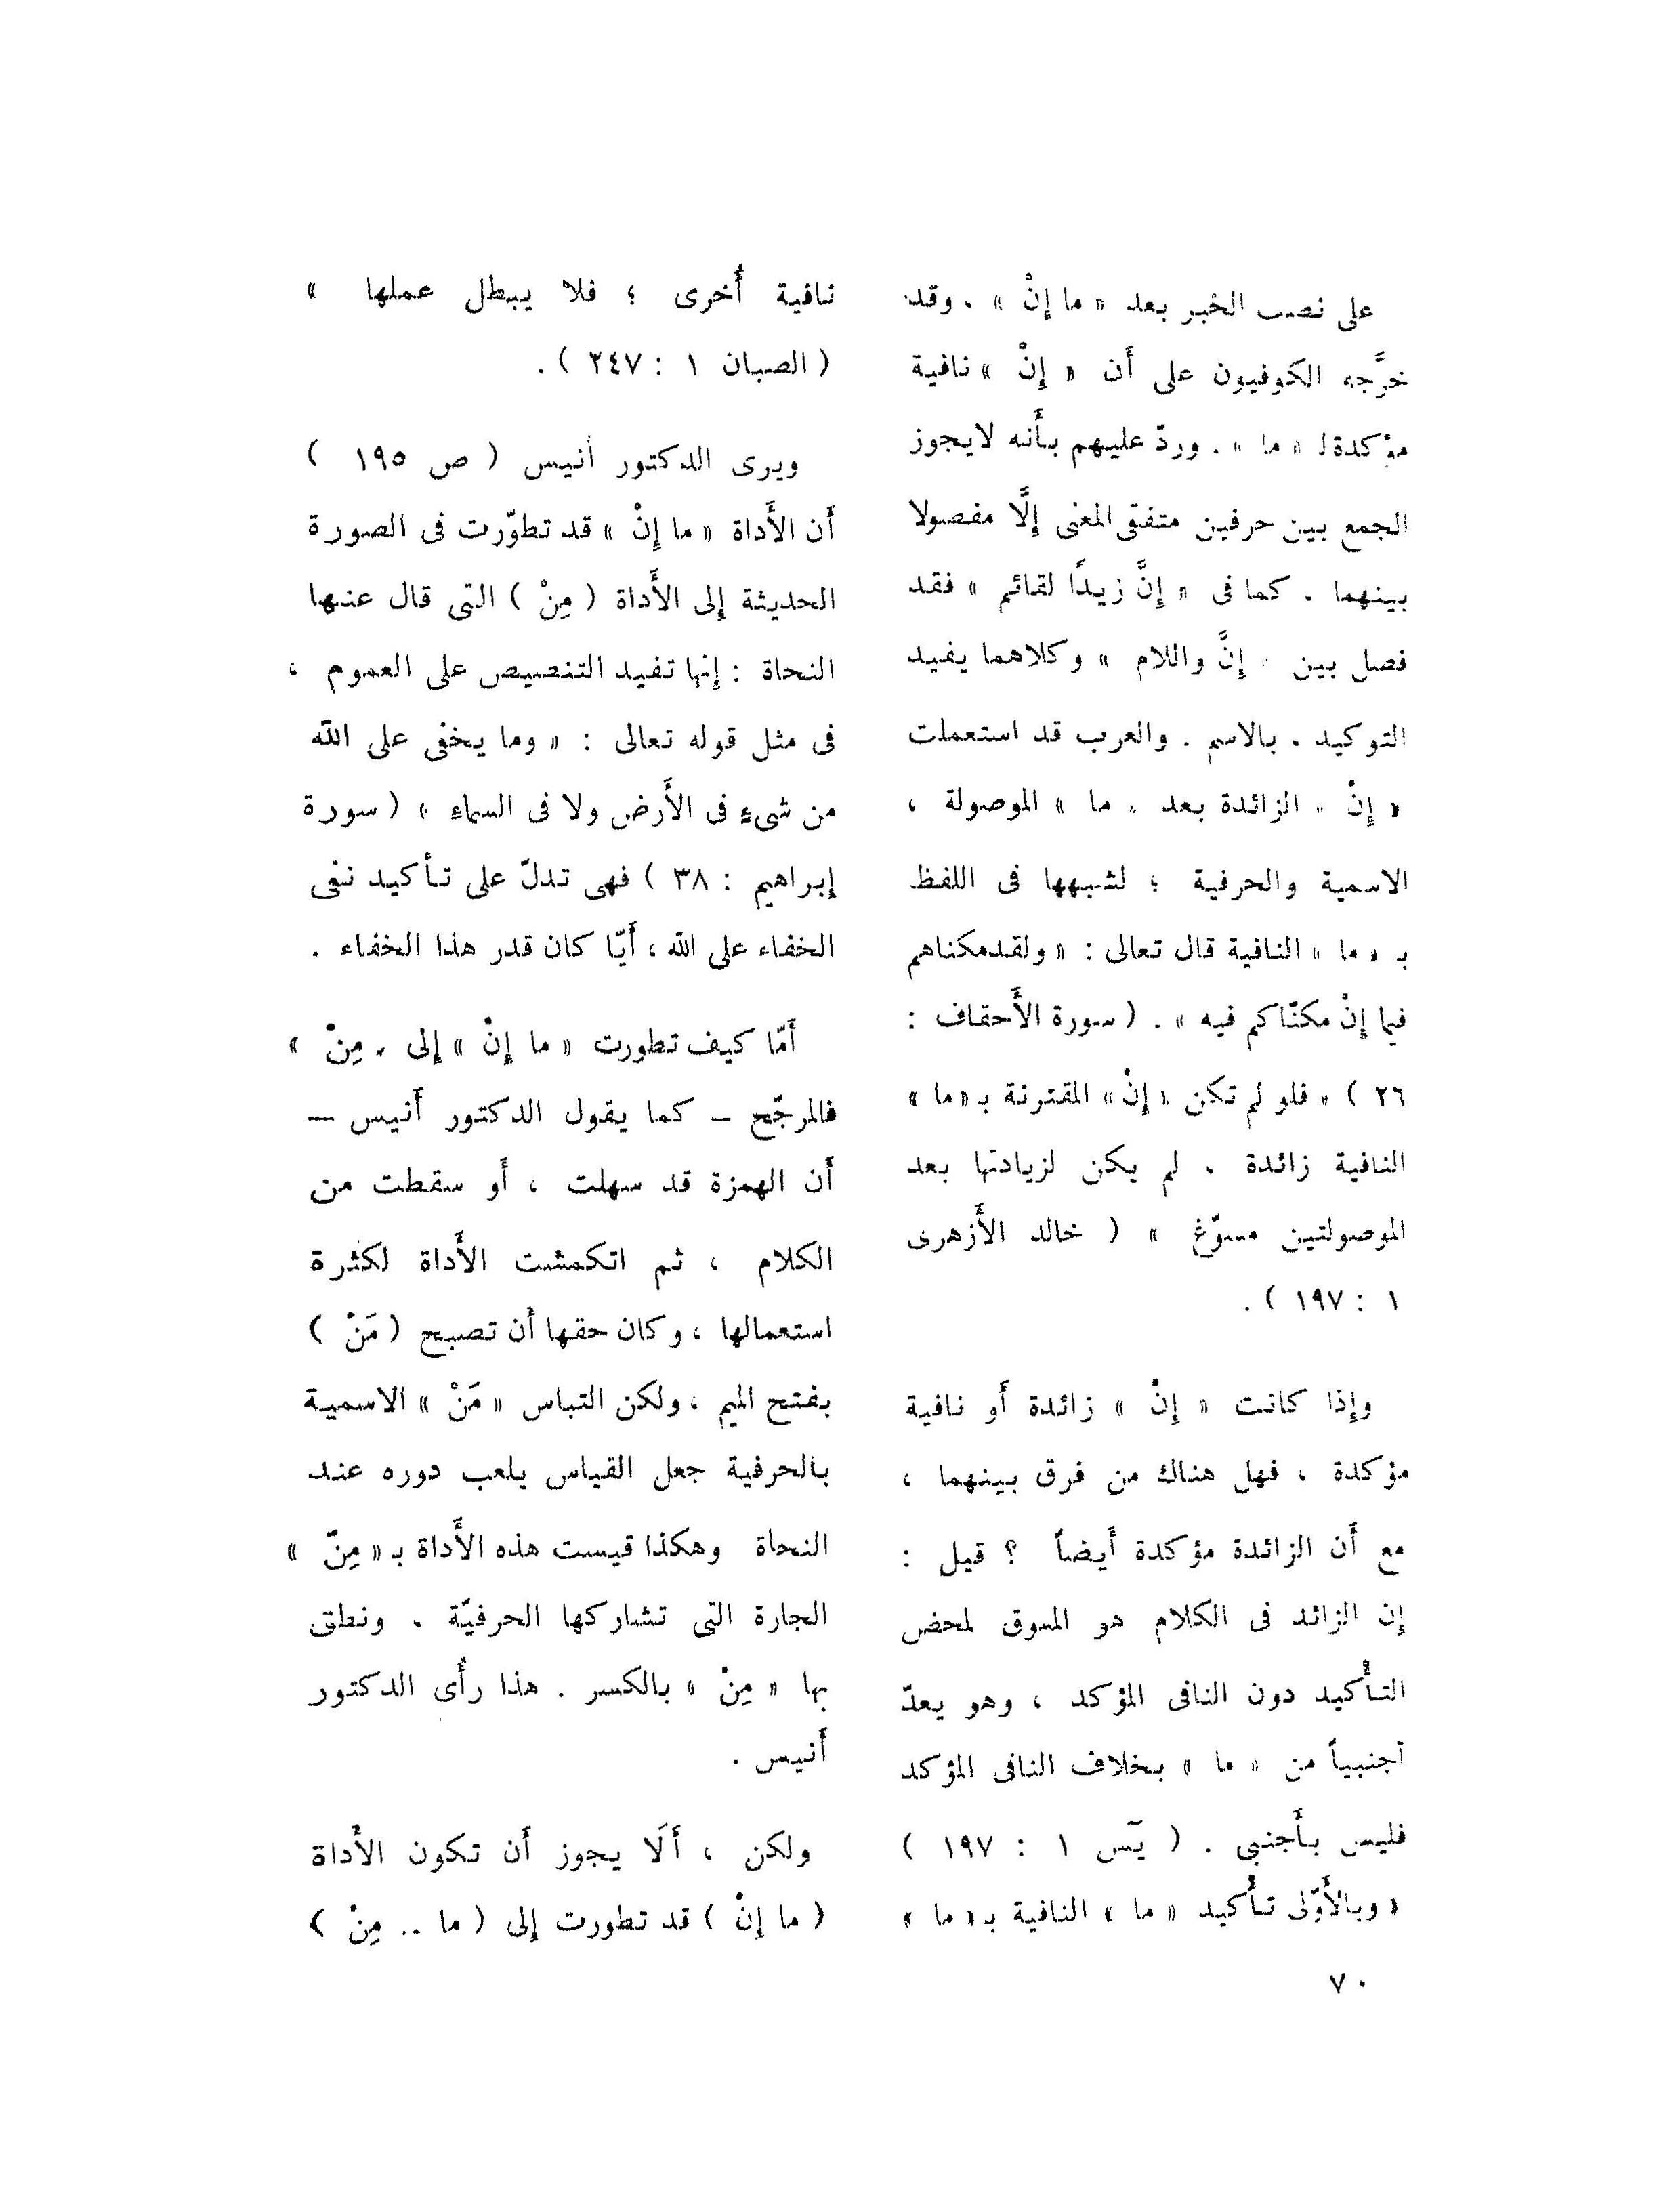 على نصب الخبر بعد « ما إنْ » . وقد
خرَّجه الكوفيون على أَن « إِنْ » نافية
مؤكدة لـ « ما » . وردّ عليهم بأَنه لايجوز
الجمع بين حرفين متفقى المعنى إلَّا مفصولا
بينهما . كما فى « إِنَّ زيدًا لقائم » فقد
فصل بين « إِنَّ واللام » وكلاهما يفيد
التوكيد . بالاسم . والعرب قد استعملت
« إِنْ » الزائدة بعد « ما » الموصولة ،
الاسمية والحرفية ؛ لشبهها فى اللفظ
بـ « ما » النافية قال تعالى : « ولقدمكناهم
فيما إنْ مكنّاكم فيه » . ( سورة الأَحقاف :
٢٦ ) « فلو لم تكن « إنْ » المقترنة بـ « ما »
النافية زائدة . لم يكن لزيادتها بعد
الموصولتين مسوّغ » ( خالد الأَزهرى
١ : ١٩٧ ) .
وإذا كانت « إِنْ » زائدة أَو نافية
مؤكدة ، فهل هناك من فرق بينهما ،
مع أَن الزائدة مؤكدة أَيضاً ؟ قيل :
إن الزائد فى الكلام هو المسوق لمحض
التأْكيد دون النافى المؤكد ، وهو يعدّ
أجنبياً من « ما » بخلاف النافى المؤكد
فليس بأَجنبى . ( يَس ١ : ١٩٧ )
« وبالأَوْلى تأْكيد « ما » النافية بـ « ما »
نافية أُخرى ؛ فلا يبطل عملها »
( الصبان ١ : ٢٤٧ ) .
ويرى الدكتور أنيس ( ص ١٩٥ )
أَن الأَداة « ما إِنْ » قد تطوّرت فى الصورة
الحديثة إلى الأَداة ( مِنْ ) التى قال عنها
النحاة : إنها تفيد التنصيص على العموم ،
فى مثل قوله تعالى : « وما يخفى على الله
من شىءٍ فى الأَرض ولا فى السماءِ » ( سورة
إبراهيم : ٣٨ ) فهى تدلّ على تأكيد نفى
الخفاء على الله ، أَيّا كان قدر هذا الخفاء .
أَمّا كيف تطورت « ما إنْ » إلى « مِنْ »
فالمرجّح – كما يقول الدكتور أَنيس –
أَن الهمزة قد سهلت ، أَو سقطت من
الكلام ، ثم اتكمشت الأَداة لكثرة
استعمالها ، وكان حقها أَن تصبح ( مَنْ )
بفتح الميم ، ولكن التباس « مَنْ » الاسمية
بالحرفية جعل القياس يلعب دوره عند
النحاة وهكذا قيست هذه الأَداة بـ « مِنّ »
الجارة التى تشاركها الحرفيّة . ونطق
بها « مِنْ » بالكسر . هذا رأْى الدكتور
أَنيس .
ولكن ، أَلَا يجوز أَن تكون الأَداة
( ما إنْ ) قد تطورت إلى ( ما .. مِنْ )
٧٠